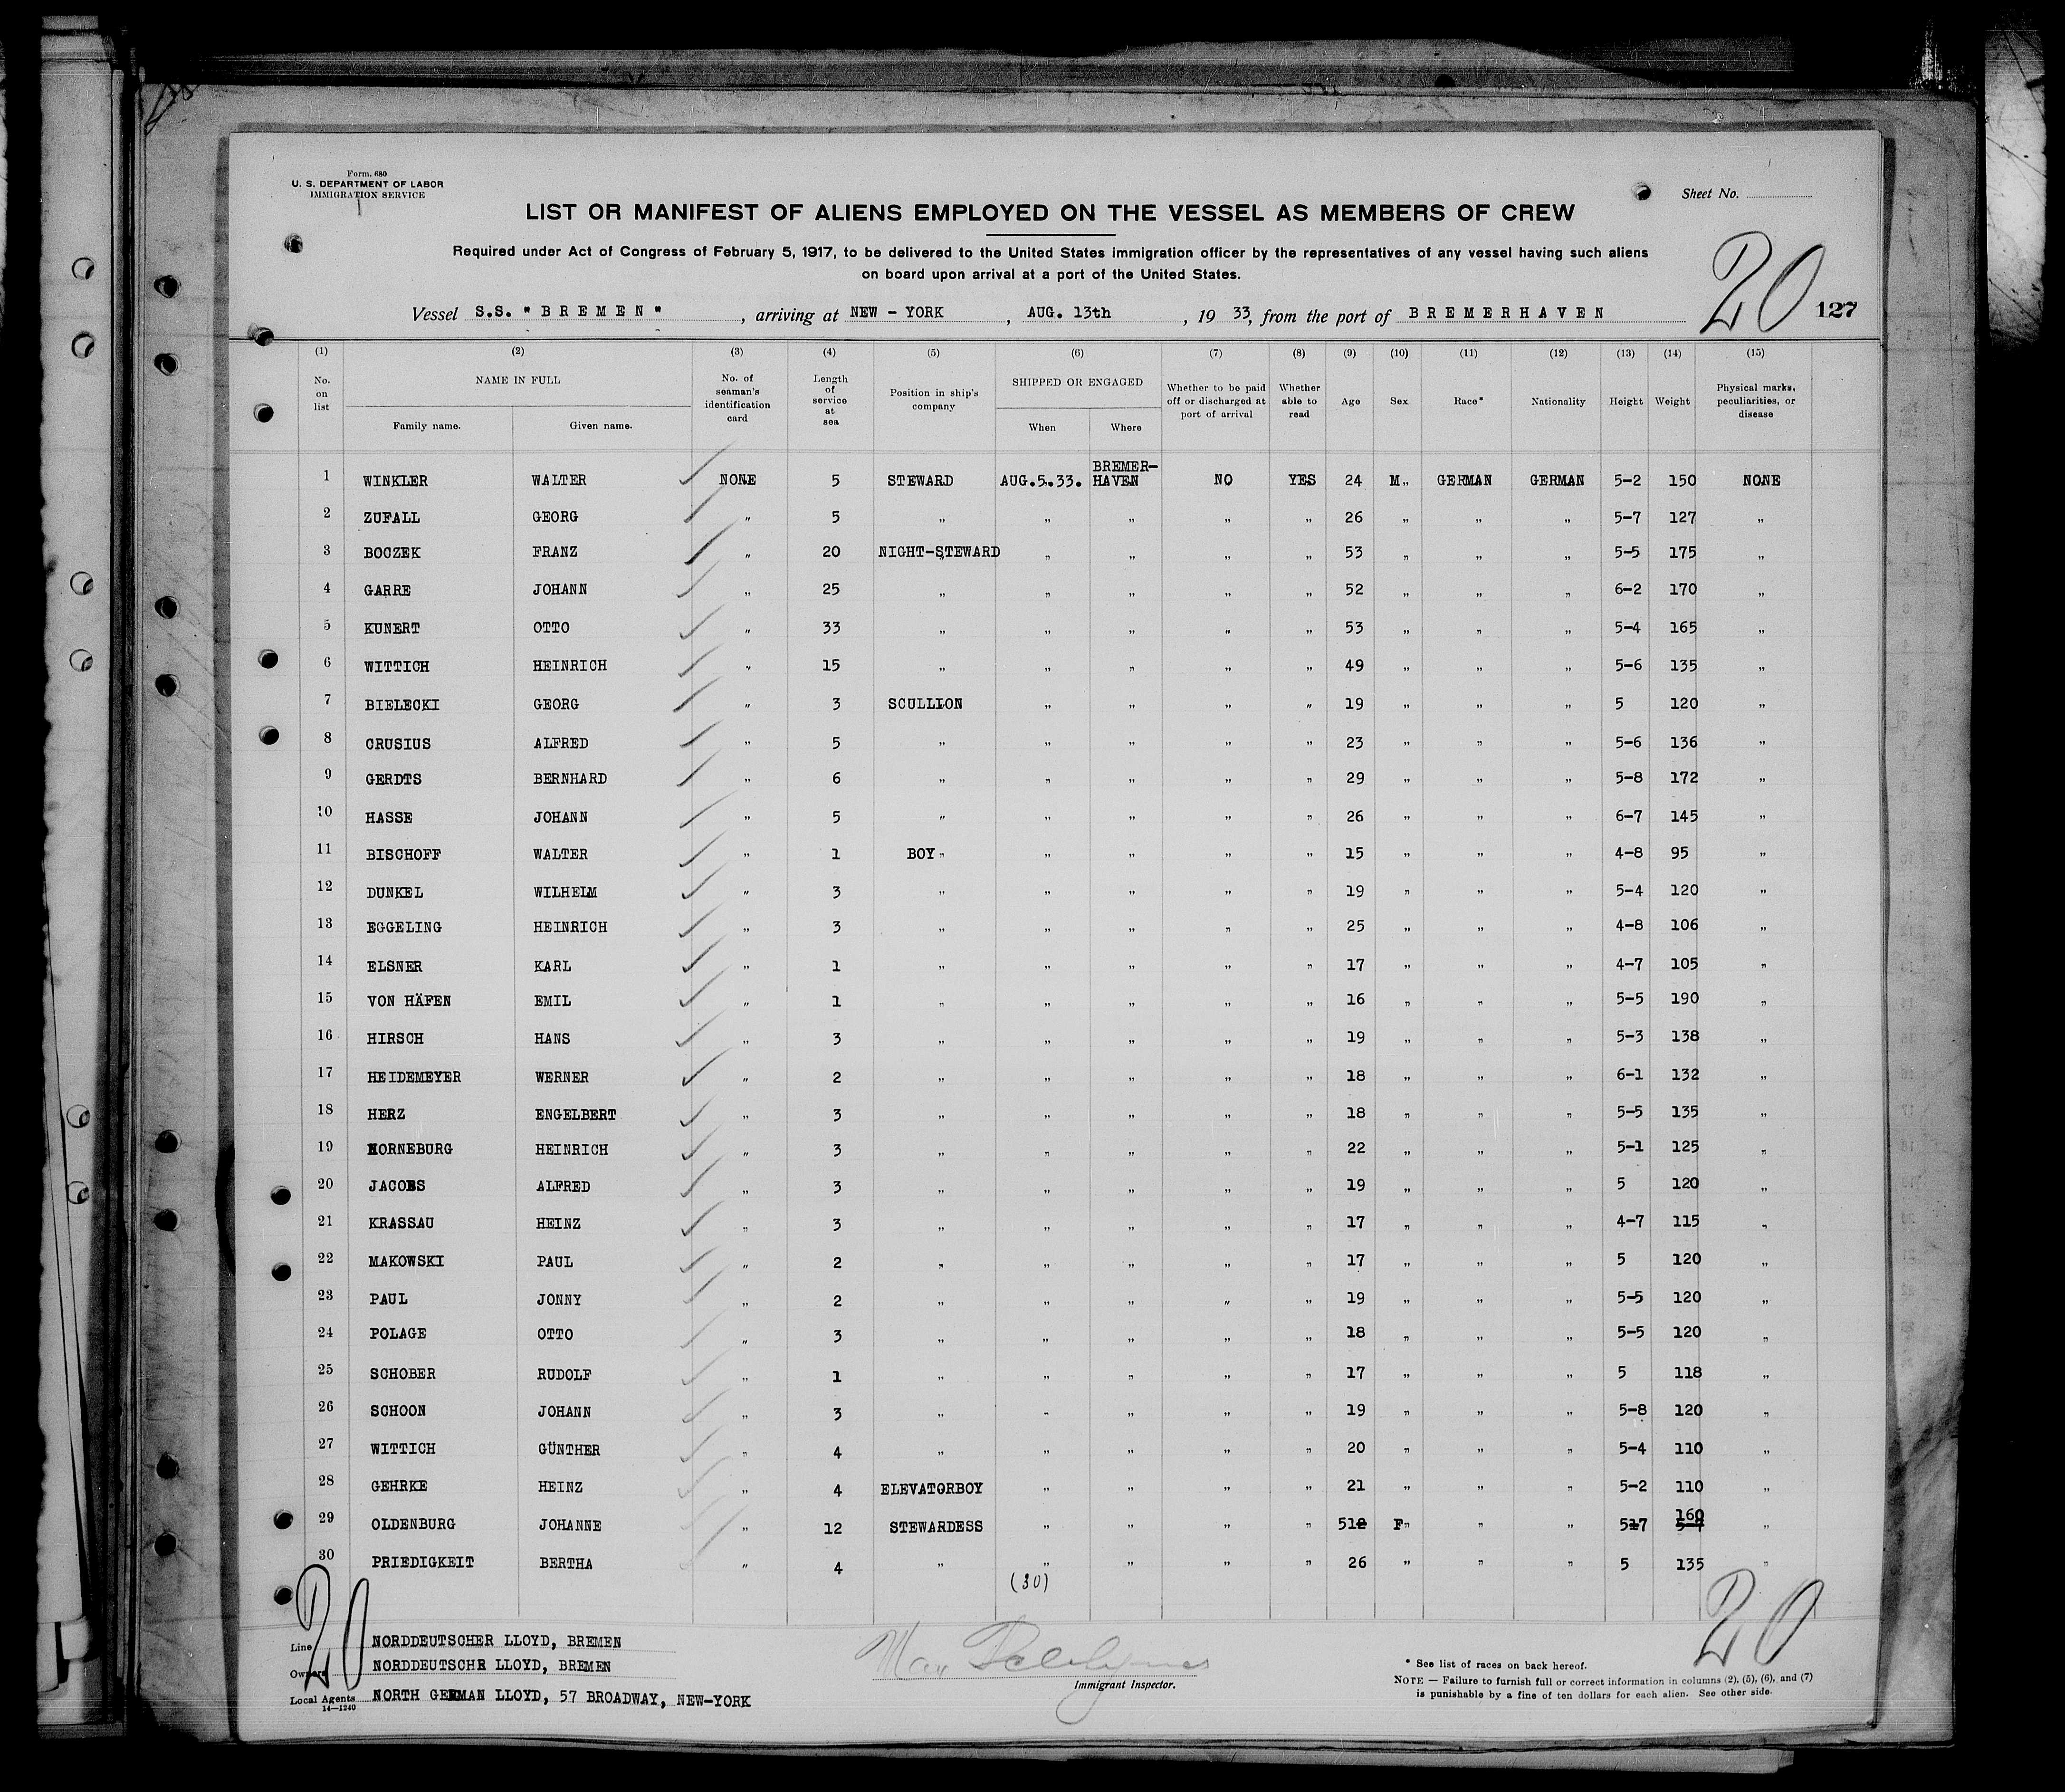 Form. 680
U. S. DEPARTMENT OF LABOR
IMMIGRATION SERVICE
Sheet No.
LIST OR MANIFEST OF ALIENS EMPLOYED ON THE VESSEL AS MEMBERS OF CREW
Required under Act of Congress of February 5, 1917, to be delivered to the United States immigration officer by the representatives of any vessel having such aliens
on board upon arrival at a port of the United States.
20
Vessel S.S. "BREMEN", arriving at NEW - YORK, AUG. 13th, 19 33, from the port of BREMERHAVEN 127
(1) (2) (3) (4) (5) (6) (7) (8) (9) (10) (11) (12) (13) (14) (15)
No. on list NAME IN FULL Family name. Given name. No. of seaman's identification card Length of service at sea Position in ship's company SHIPPED OR ENGAGED When Where Whether to be paid off or discharged at port of arrival Whether able to read Age Sex Race* Nationality Height Weight Physical marks, peculiarities, or disease
1 WINKLER WALTER NONE 5 STEWARD AUG.5.33. BREMER-HAVEN NO YES 24 M. GERMAN GERMAN 5-2 150 NONE
2 ZUFALL GEORG " 5 " " " " " 26 " " " 5-7 127 "
3 BOCZEK FRANZ " 20 NIGHT-STEWARD " " " " 53 " " " 5-5 175 "
4 GARRE JOHANN " 25 " " " " " 52 " " " 6-2 170 "
5 KUNERT OTTO " 33 " " " " " 53 " " " 5-4 165 "
6 WITTICH HEINRICH " 15 " " " " " 49 " " " 5-6 135 "
7 BIELECKI GEORG " 3 SCULLION " " " " 19 " " " 5 120 "
8 CRUSIUS ALFRED " 5 " " " " " 23 " " " 5-6 136 "
9 GERDTS BERNHARD " 6 " " " " " 29 " " " 5-8 172 "
10 HASSE JOHANN " 5 " " " " " 26 " " " 6-7 145 "
11 BISCHOFF WALTER " 1 BOY " " " " " 15 " " " 4-8 95 "
12 DUNKEL WILHELM " 3 " " " " " 19 " " " 5-4 120 "
13 EGGELING HEINRICH " 3 " " " " " 25 " " " 4-8 106 "
14 ELSNER KARL " 1 " " " " " 17 " " " 4-7 105 "
15 VON HÄFEN EMIL " 1 " " " " " 16 " " " 5-5 190 "
16 HIRSCH HANS " 3 " " " " " 19 " " " 5-3 138 "
17 HEIDEMEYER WERNER " 2 " " " " " 18 " " " 6-1 132 "
18 HERZ ENGELBERT " 3 " " " " " 18 " " " 5-5 135 "
19 HORNEBURG HEINRICH " 3 " " " " " 22 " " " 5-1 125 "
20 JACOBS ALFRED " 3 " " " " " 19 " " " 5 120 "
21 KRASSAU HEINZ " 3 " " " " " 17 " " " 4-7 115 "
22 MAKOWSKI PAUL " 2 " " " " " 17 " " " 5 120 "
23 PAUL JONNY " 2 " " " " " 19 " " " 5-5 120 "
24 POLAGE OTTO " 3 " " " " " 18 " " " 5-5 120 "
25 SCHOBER RUDOLF " 1 " " " " " 17 " " " 5 118 "
26 SCHOON JOHANN " 3 " " " " " 19 " " " 5-8 120 "
27 WITTICH GÜNTHER " 4 " " " " " 20 " " " 5-4 110 "
28 GEHRKE HEINZ " 4 ELEVATORBOY " " " " 21 " " " 5-2 110 "
29 OLDENBURG JOHANNE " 12 STEWARDESS " " " " F " " 160 "
30 PRIEDIGKEIT BERTHA " 4 " " " " " 26 " " " 5 135 "
(30)
20
20
Line NORDDEUTSCHER LLOYD, BREMEN
Owners NORDDEUTSCHR LLOYD, BREMEN
Local Agents NORTH GERMAN LLOYD, 57 BROADWAY, NEW-YORK
14—1240
Immigrant Inspector.
* See list of races on back hereof.
NOTE — Failure to furnish full or correct information in columns (2), (5), (6), and (7)
is punishable by a fine of ten dollars for each alien. See other side.